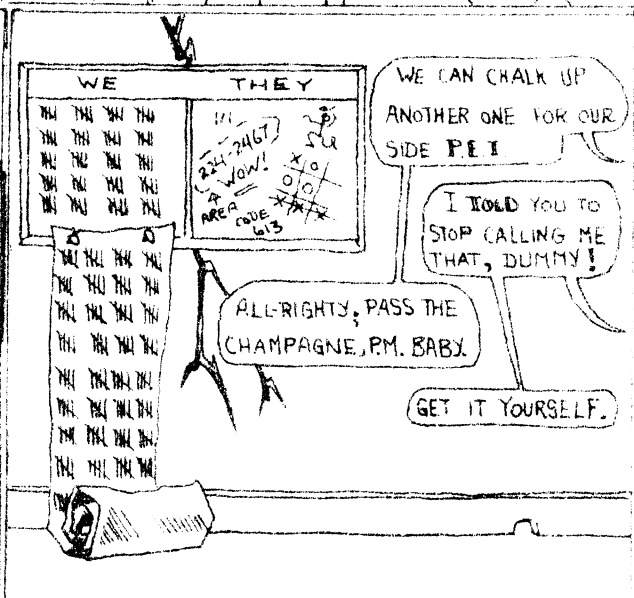 WE THEY
III
224-2467
WOW!
AREA
CODE
613
X O
O O
X X X
WE CAN CHALK UP
ANOTHER ONE FOR OUR
SIDE P.E.T
I TOLD YOU TO
STOP CALLING ME
THAT, DUMMY!
ALL-RIGHTY, PASS THE
CHAMPAGNE, P.M. BABY.
GET IT YOURSELF.